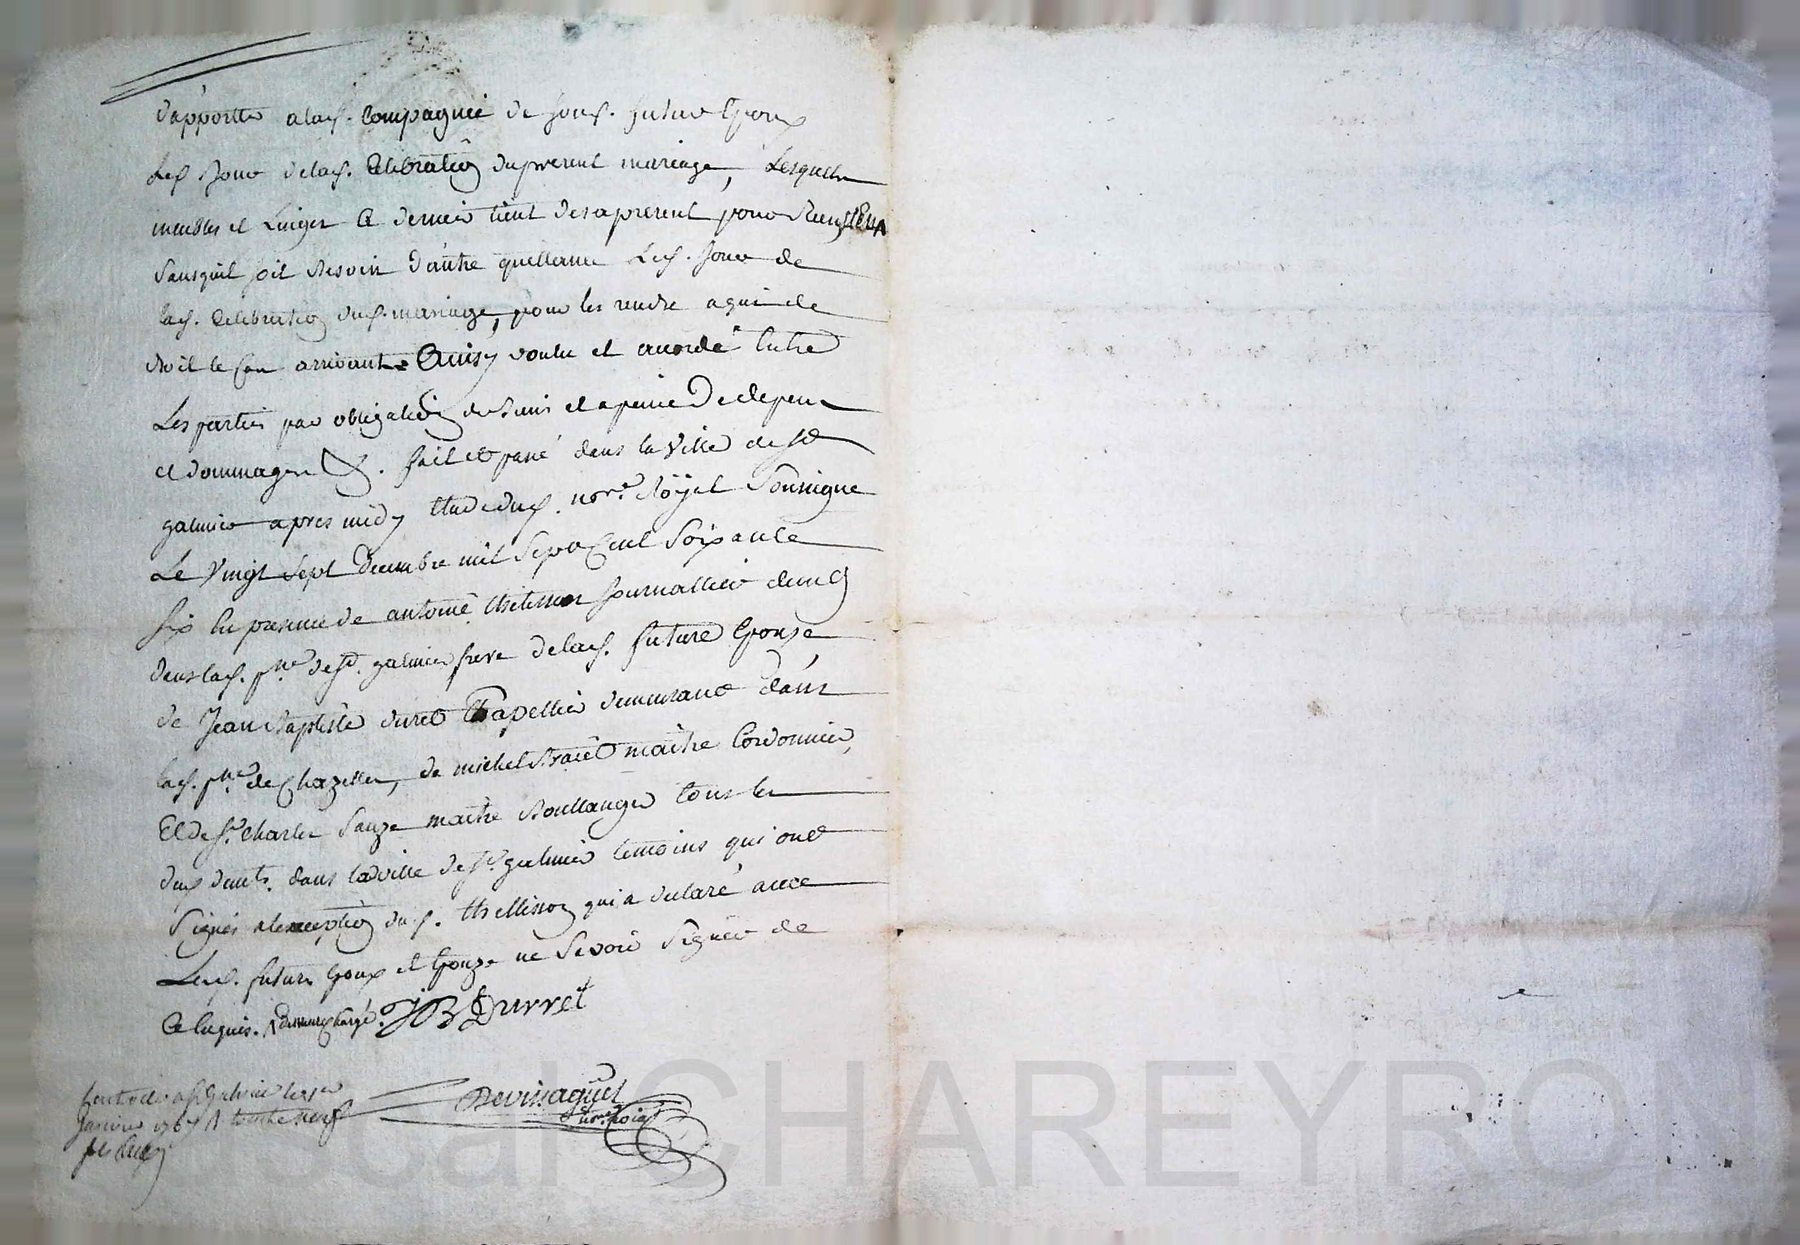 d'apporter a lad. Compagnie de sond. futur Epoux
Led. Jour de lad. Celebration du present mariage, Lesquels
meubles et Linges Ce dernier tient des a present pour
sans quil soit besoin d'autre quittance Led. Jour de
lad. Celebration dud. mariage, pour les rendre a qui de
droit le cas arrivant. Ainsy voulu et accordé Entre
Les parties par obligation de biens et a peine de depens
et dommages &. fait et passé dans la Ville de St
galmier apres midy Etude dud. nore. Royal Soussigné
Le Vingt sept Decembre mil Sept Cent Soixante
six En presence de antoine thelisson Journallier demt
dans lad. psse de St. galmier frere de lad. future Epouse
de Jean Baptiste durret Chapellier demeurant dans
lad. psse de Chazelles, de michel maitre Cordonnier,
Et de sr. charles Sauze maitre Boullanger tous les
deux demts. dans la ville de St. galmier temoins qui ont
Signés a lexception dud. thellisson qui a declaré avec
Lesd. futurs Epoux et Epouze ne Scavoir Signer de
Ce Enquis. JB Durret
Devissaguet
nore. Roial
Controlle a St Galmier le
Janvier 1767 R trente neuf
sols
CHAREYRON